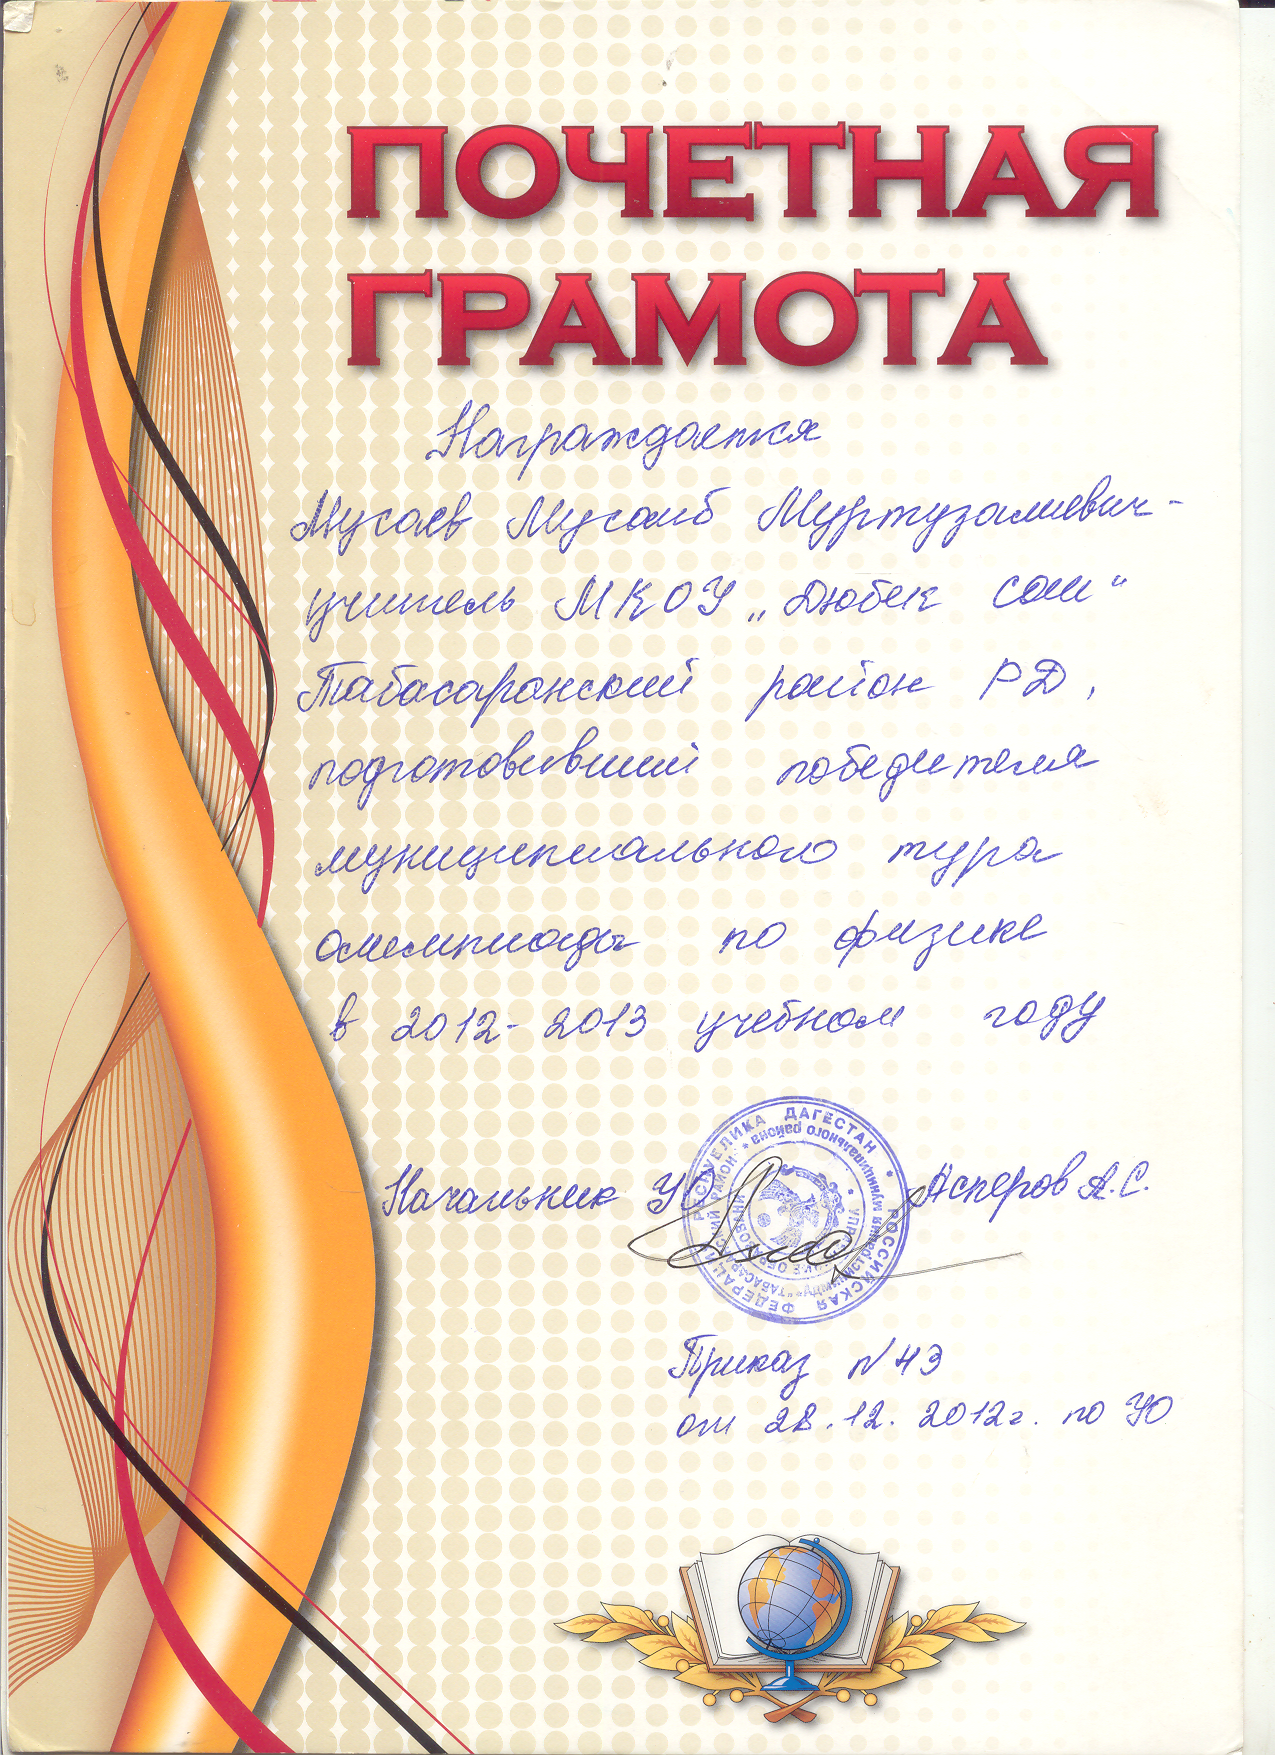 ПОЧЕТНАЯ
ГРАМОТА
Награждается
Мусаев Мусаиб Муртузалиевич -
учитель МКОУ „Дюбек сош“
Табасаранский район РД,
подготовивший победителя
муниципального тура
олимпиады по физике
в 2012-2013 учебном году
РОССИЙСКАЯ ФЕДЕРАЦИЯ * РЕСПУБЛИКА ДАГЕСТАН *
муниципального района * "ТАБАСАРАНСКИЙ РАЙОН" *
Начальник УО Асперов А.С.
Приказ N 43
от 28.12.2012г. по УО